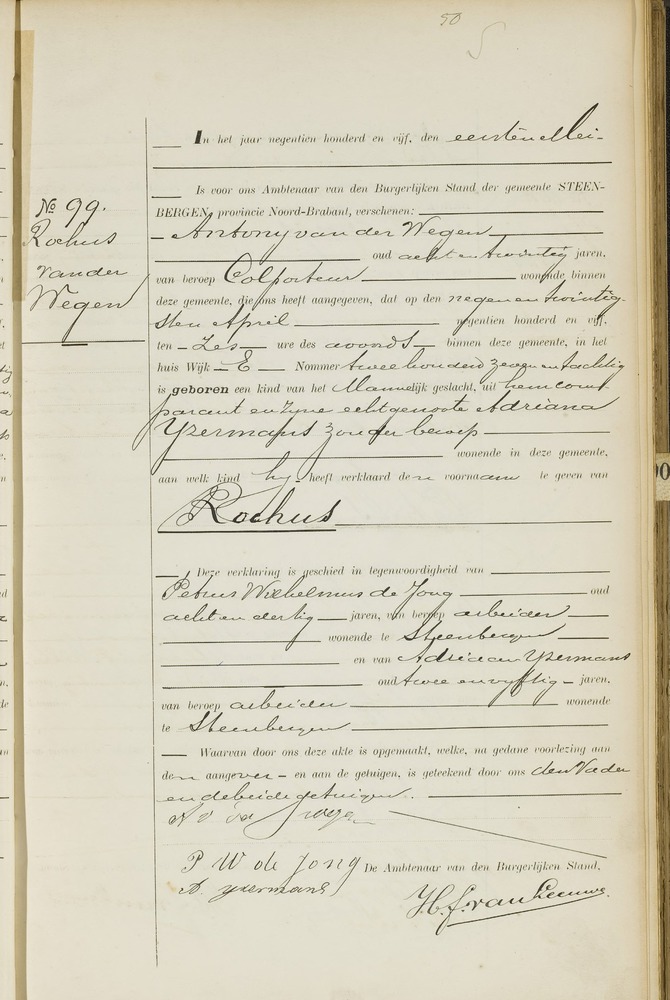 50
In het jaar negentien honderd en vijf, den eersten Mei-
Is voor ons Ambtenaar van den Burgerlijken Stand der gemeente STEEN-
BERGEN, provincie Noord-Brabant, verschenen:
No 99.
Rochus
van der
Wegen
Antony van der Wegen
oud acht en twintig jaren,
van beroep Colporteur wonende binnen
deze gemeente, die ons heeft aangegeven, dat op den negen en twintig-
sten April negentien honderd en vijf,
ten Zes ure des avonds binnen deze gemeente, in het
huis Wijk E Nommer tweehonderd zeven en tachtig
is geboren een kind van het Mannelijk geslacht, uit hem com-
parant en zijne echtgenoote Adriana
Yzermans zonder beroep
wonende in deze gemeente,
aan welk kind hij heeft verklaard den voornaam te geven van
Rochus
Deze verklaring is geschied in tegenwoordigheid van
Petrus Wilhelmus de Jong oud
acht en dertig jaren, van beroep arbeider
wonende te Steenbergen
en van Adriaan Yzermans
oud twee en vijftig jaren,
van beroep arbeider wonende
te Steenbergen
Waarvan door ons deze akte is opgemaakt, welke, na gedane voorlezing aan
den aangever en aan de getuigen, is geteekend door ons den Vader
en de beide getuigen.
A v der Wegen
P W de Jong De Ambtenaar van den Burgerlijken Stand,
A. yzermans
H. f. van Leeuwe